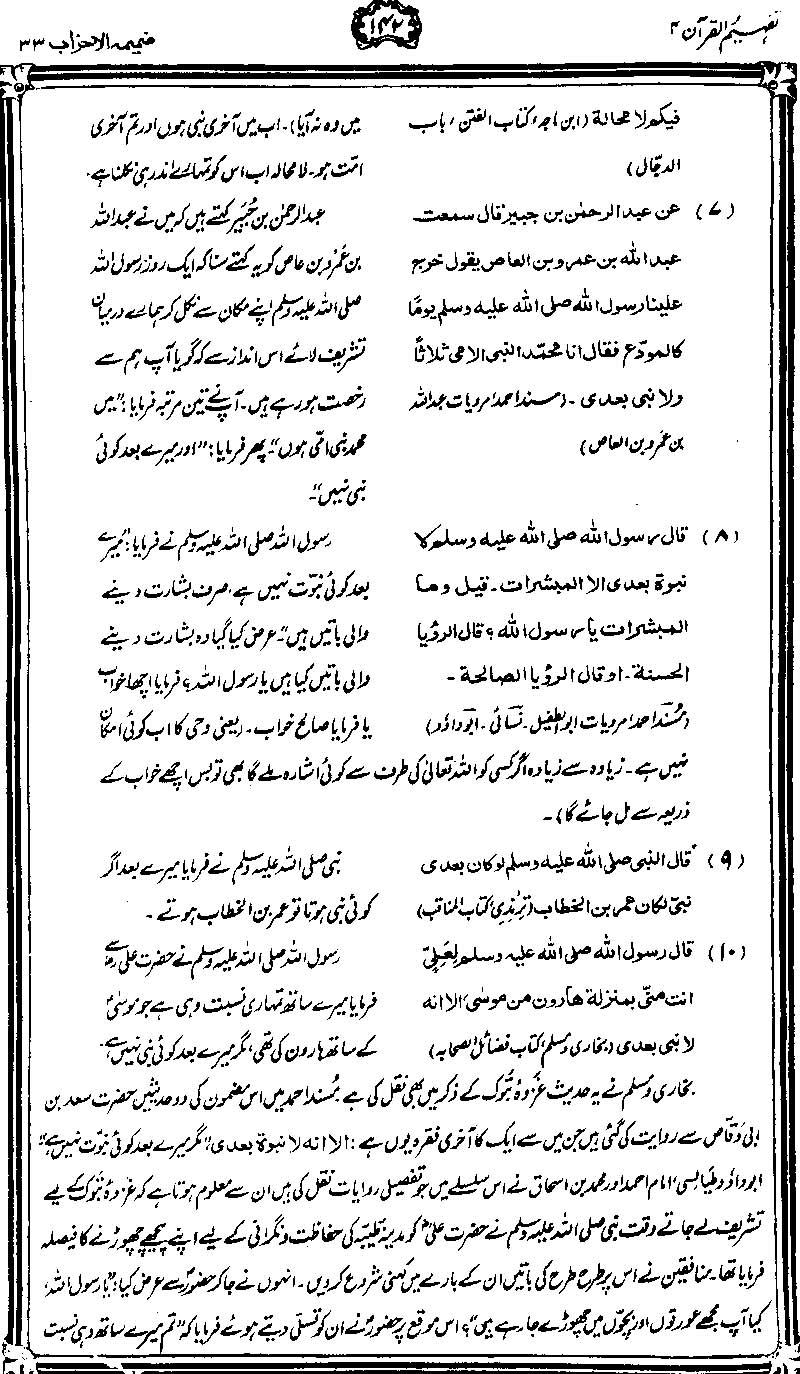 تفہیم القرآن ۴
۱۴۲
ضمیمہ الاحزاب ۳۳
فیکم لا محالة (ابن ماجہ، کتاب الفتن، باب
الدجّال)
میں وہ نہ آیا)۔ اب میں آخری نبی ہوں اور تم آخری
امت ہو۔ لا محالہ اب اس کو تمہارے اندر ہی نکلنا ہے۔
(۷) عن عبد الرحمٰن بن جبیر قال سمعت
عبد الله بن عمرو بن العاص یقول خرج
علینا رسول الله صلی الله علیه وسلم یومًا
کالمودّع فقال انا محمّد النبی الامی ثلاثًا
ولا نبی بعدی۔ (مسند احمد، مرویات عبداللہ
بن عمرو بن العاص)
عبدالرحمٰن بن جُبَیر کہتے ہیں کہ میں نے عبداللہ
بن عَمْرو بن عاص کو یہ کہتے سنا کہ ایک روز رسول اللہ
صلی اللہ علیہ وسلم اپنے مکان سے نکل کر ہمارے درمیان
تشریف لائے اس انداز سے کہ گویا آپ ہم سے
رخصت ہو رہے ہیں۔ آپ نے تین مرتبہ فرمایا: ”میں
محمد نبی امّی ہوں“۔ پھر فرمایا: ”اور میرے بعد کوئی
نبی نہیں“۔
(۸) قال رسول الله صلی الله علیه وسلم لا
نبوة بعدی الا المبشرات۔ قیل وما
المبشرات یا رسول الله؟ قال الرؤیا
الحسنة۔ او قال الرؤیا الصالحة۔
(مُسند احمد، مرویات ابو الطفیل۔ نسائی۔ ابوداؤد)
رسول اللہ صلی اللہ علیہ وسلم نے فرمایا: ”میرے
بعد کوئی نبوّت نہیں ہے، صرف بشارت دینے
والی باتیں ہیں“۔ عرض کیا گیا وہ بشارت دینے
والی باتیں کیا ہیں یا رسول اللہ؟ فرمایا اچھا خواب
یا فرمایا صالح خواب۔ (یعنی وحی کا اب کوئی امکان
نہیں ہے۔ زیادہ سے زیادہ اگر کسی کو اللہ تعالیٰ کی طرف سے کوئی اشارہ ملے گا بھی تو بس اچھے خواب کے
ذریعہ سے مل جائے گا)۔
(۹) قال النبی صلی الله علیه وسلم لو کان بعدی
نبیّ لکان عمر بن الخطاب (ترمذی، کتاب المناقب)
نبی صلی اللہ علیہ وسلم نے فرمایا میرے بعد اگر
کوئی نبی ہوتا تو عمر بن الخطاب ہوتے۔
(۱۰) قال رسول الله صلی الله علیه وسلم لعَلِیّ
انت منّی بمنزلة هارون من موسیٰ الا انه
لا نبی بعدی (بخاری و مسلم، کتاب فضائل الصحابہ)
رسول اللہ صلی اللہ علیہ وسلم نے حضرت علی رض سے
فرمایا میرے ساتھ تمہاری نسبت وہی ہے جو موسیٰ
کے ساتھ ہارون کی تھی، مگر میرے بعد کوئی نبی نہیں ہے۔
بخاری و مسلم نے یہ حدیث غزوۂ تبوک کے ذکر میں بھی نقل کی ہے۔ مُسند احمد میں اس مضمون کی دو حدیثیں حضرت سعد بن
ابی وقاص سے روایت کی گئی ہیں جن میں سے ایک کا آخری فقرہ یوں ہے: الا انه لا نبوة بعدی، ”مگر میرے بعد کوئی نبوت نہیں ہے“
ابوداؤد طیالسی، امام احمد اور محمد بن اسحاق نے اس سلسلے میں جو تفصیلی روایات نقل کی ہیں ان سے معلوم ہوتا ہے کہ غزوۂ تبوک کے لیے
تشریف لے جاتے وقت نبی صلی اللہ علیہ وسلم نے حضرت علیؓ کو مدینۂ طیبہ کی حفاظت و نگرانی کے لیے اپنے پیچھے چھوڑنے کا فیصلہ
فرمایا تھا۔ منافقین نے اس پر طرح طرح کی باتیں ان کے بارے میں کہنی شروع کر دیں۔ انہوں نے جا کر حضورؐ سے عرض کیا: ”یا رسول اللہ،
کیا آپ مجھے عورتوں اور بچوں میں چھوڑے جا رہے ہیں“؟ اس موقع پر حضورؐ نے ان کو تسلی دیتے ہوئے فرمایا کہ ”تم میرے ساتھ وہی نسبت